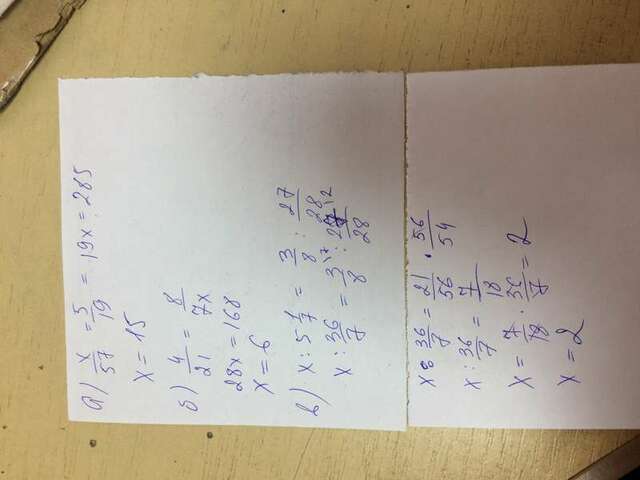 а) x/57 = 5/19 = 19x = 285
x = 15
б) 4/21 = 8/7x
28x = 168
x = 6
в) x : 5 1/7 = 3/8 : 27/28
x : 36/7 = 3/8 \7 : 27/28 \2
x : 36/7 = 21/56 · 56/54
x : 36/7 = 7/18
x = 7/18 · 36/7 = 2
x = 2